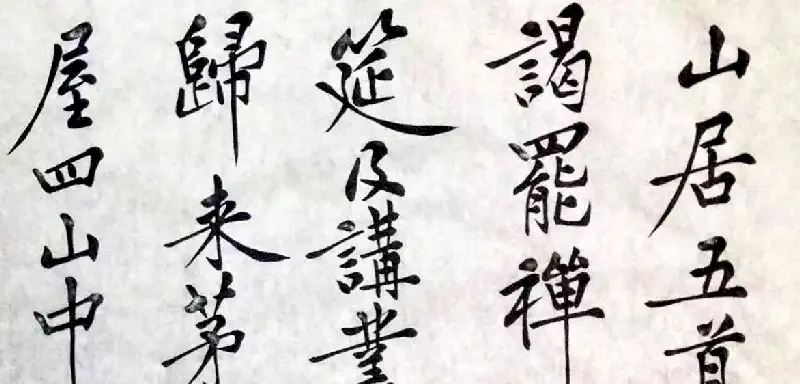 山居五首
謁罷禪
筵及講業
歸来茅
屋四山中